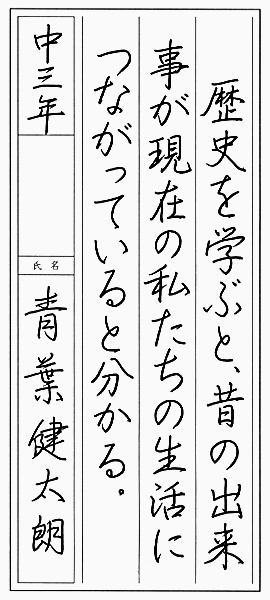 歴史を学ぶと、昔の出来
事が現在の私たちの生活に
つながっていると分かる。
中三年
氏名
青葉健太朗